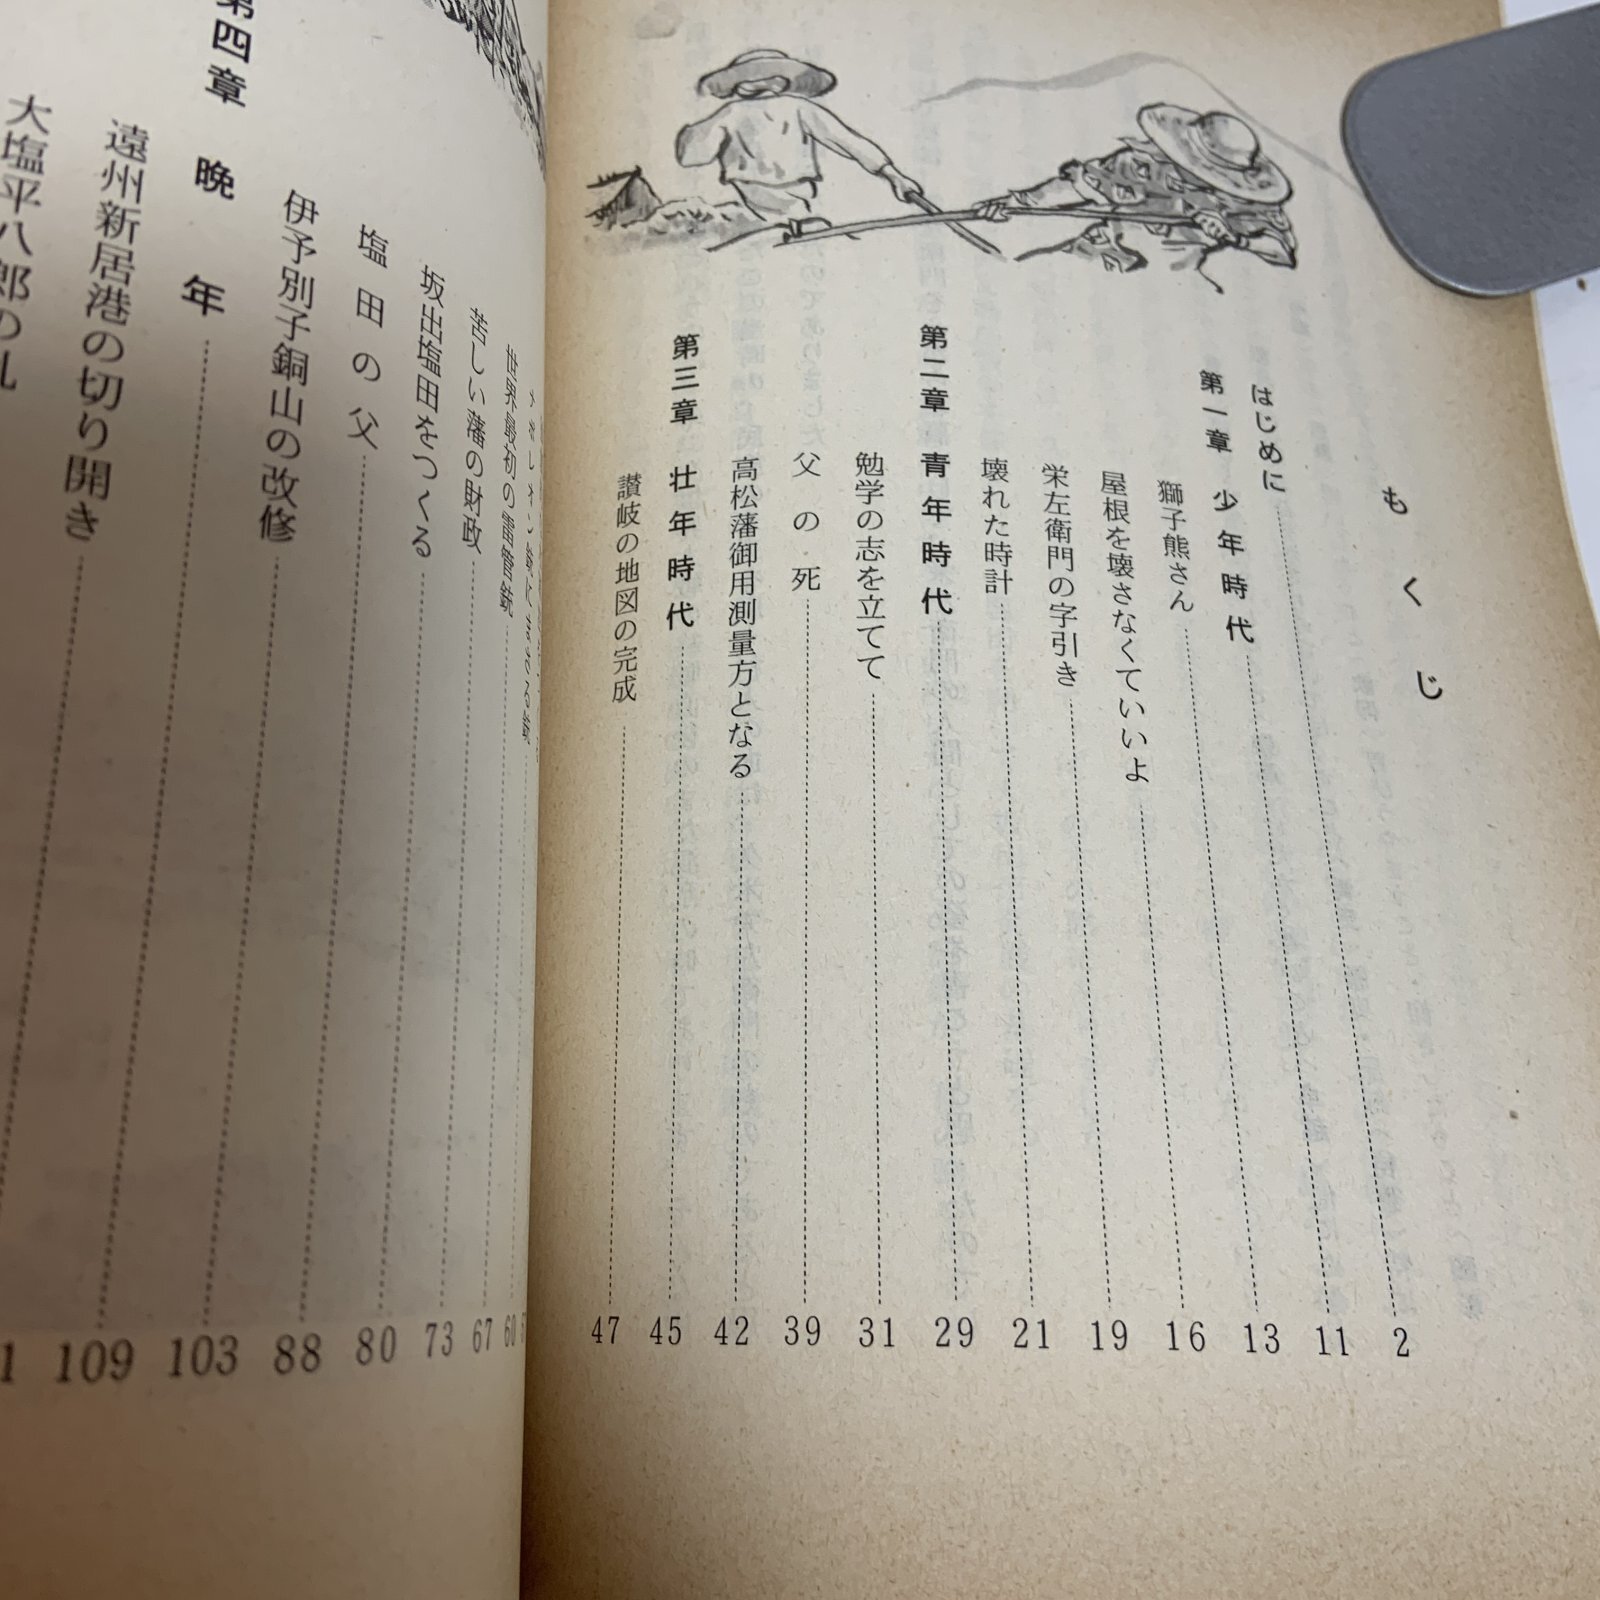 もくじ
はじめに 2
第一章 少年時代 11
獅子熊さん 13
屋根を壊さなくていいよ 16
栄左衛門の字引き 19
壊れた時計 21
第二章 青年時代 29
勉学の志を立てて 31
父の死 39
高松藩御用測量方となる 42
第三章 壮年時代 45
讃岐の地図の完成 47
世界最初の 60
苦しい藩の財政 67
坂出塩田をつくる 73
塩田の父 80
伊予別子銅山の改修 88
第四章 晩年 103
遠州新居港の切り開き 109
大塩平八郎の乱